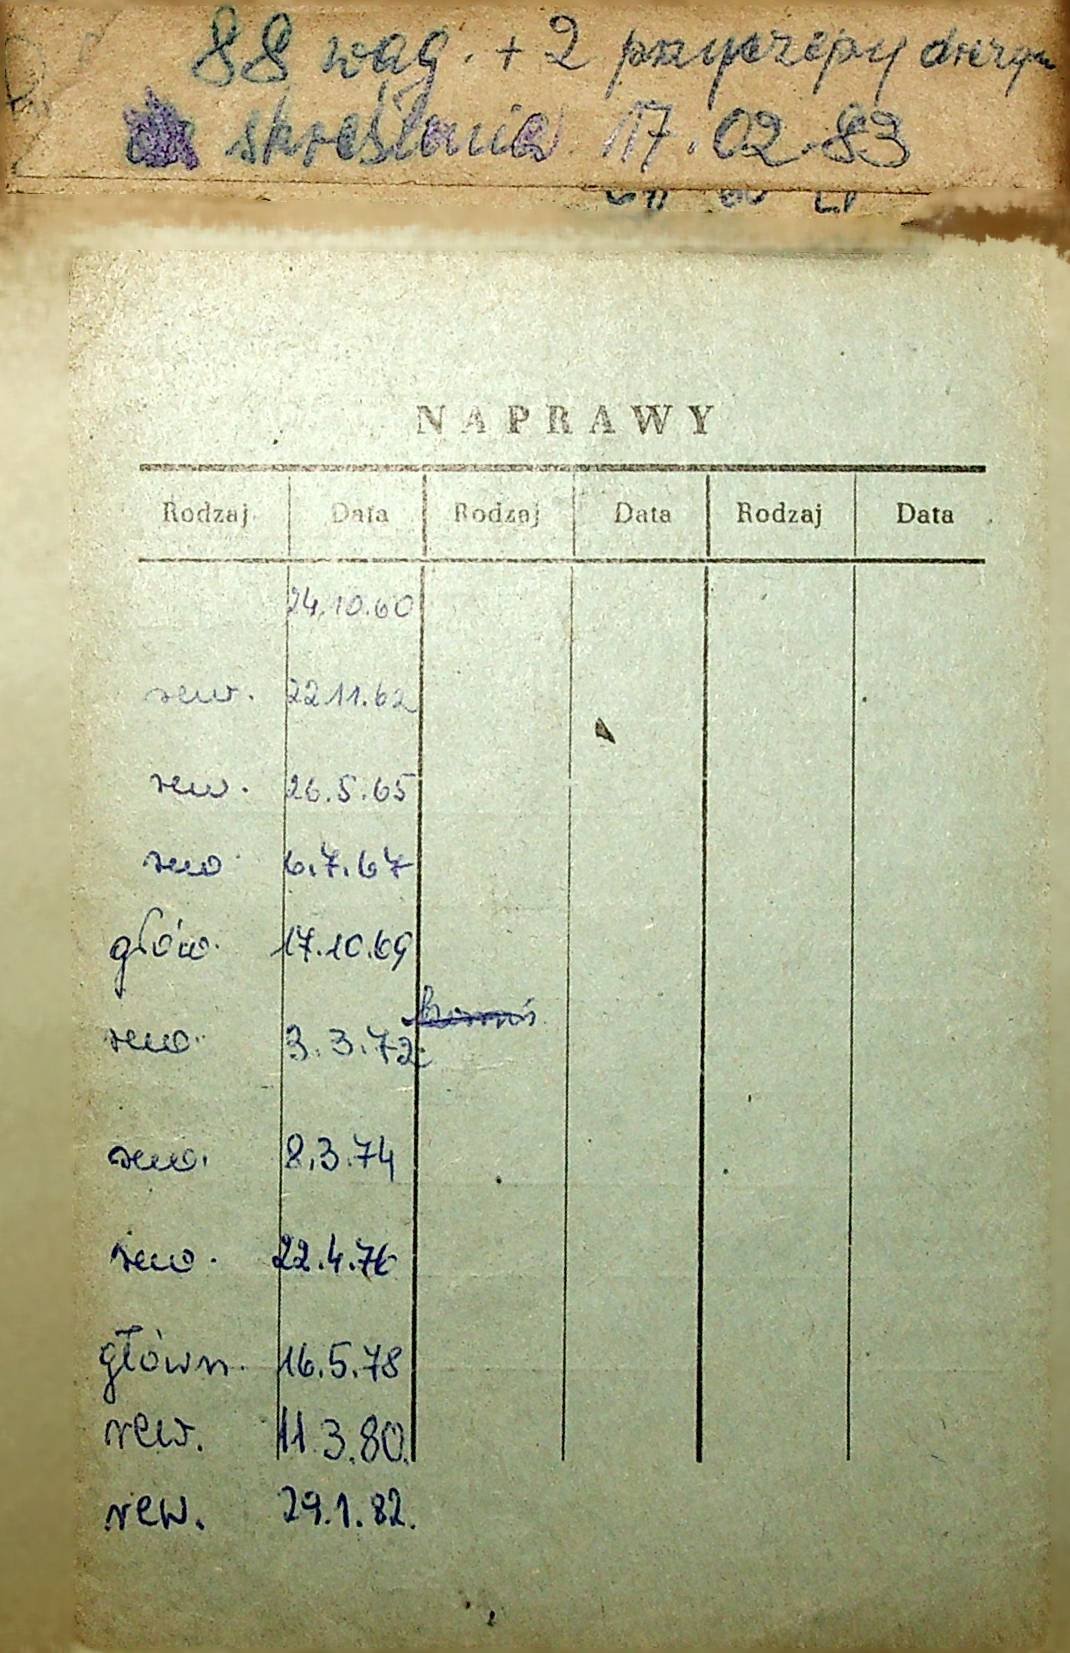 88 wag. + 2 przyczepy drezyn
skreślenia 17.02.83
NAPRAWY
Rodzaj Data Rodzaj Data Rodzaj Data
24.10.60
rew. 22.11.62
rew. 26.5.65
rew 6.7.67
głów. 17.10.69
rew. 3.3.72
rew. 8.3.74
rew. 22.4.76
główn. 16.5.78
rew. 11.3.80.
rew. 29.1.82.